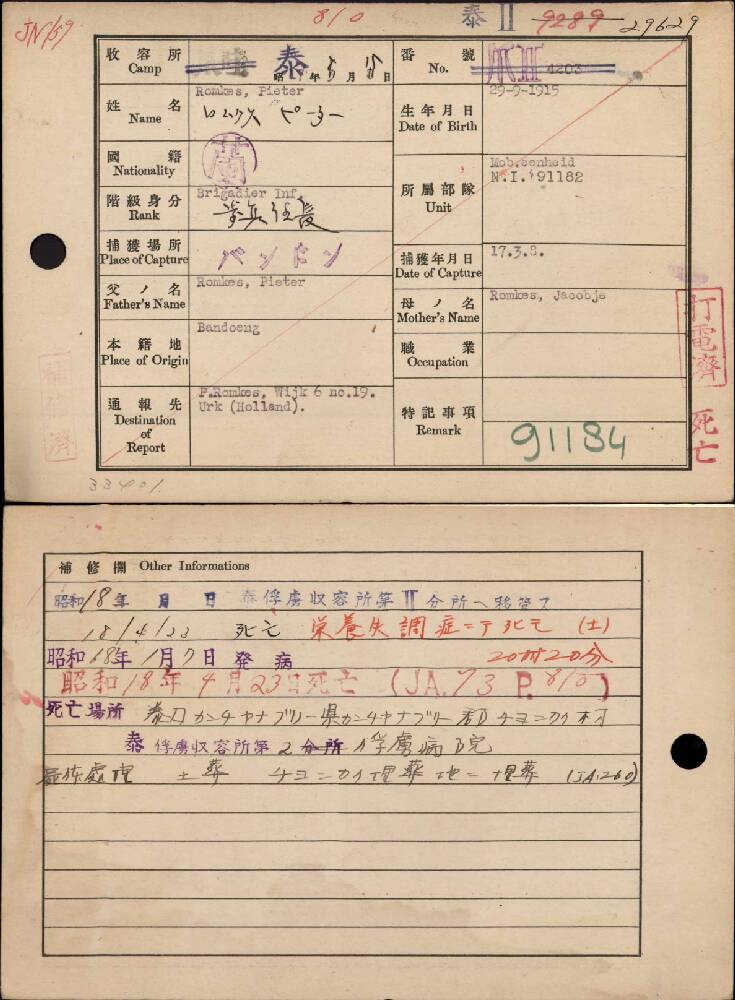 JN/59
810
泰 II
9289
29629
收容所
Camp
泰
年 月 日
番號
No.
4203
姓名
Name
Romkes, Pieter
ロムケス ピーター
生年月日
Date of Birth
29-9-1915
國籍
Nationality
蘭
所屬部隊
Unit
N.I. 91182
階級身分
Rank
Brigadier Inf.
歩兵伍長
捕獲場所
Place of Capture
バンドン
捕獲年月日
Date of Capture
17.3.8.
父ノ名
Father's Name
Romkes, Pieter
母ノ名
Mother's Name
Romkes, Jacobje
本籍地
Place of Origin
Bandoeng
職業
Occupation
通報先
Destination
of
Report
P.Romkes, Wijk 6 no.19.
Urk (Holland).
特記事項
Remark
91184
打電濟
死亡
33401
補修欄 Other Informations
昭和18年 月 日 泰俘虜収容所第II分所ヘ移管ス
18/4/23 死亡 栄養失調症ニテ死亡 (土)
昭和18年1月7日発病 20時20分
昭和18年4月23日死亡 (JA.73 P.810)
死亡場所 泰国カンチャナブリー県カンチャナブリー郡チョンカイ村
泰俘虜収容所第2分所俘虜病院
土葬 チョンカイ埋葬地ニ埋葬 (JA.260)